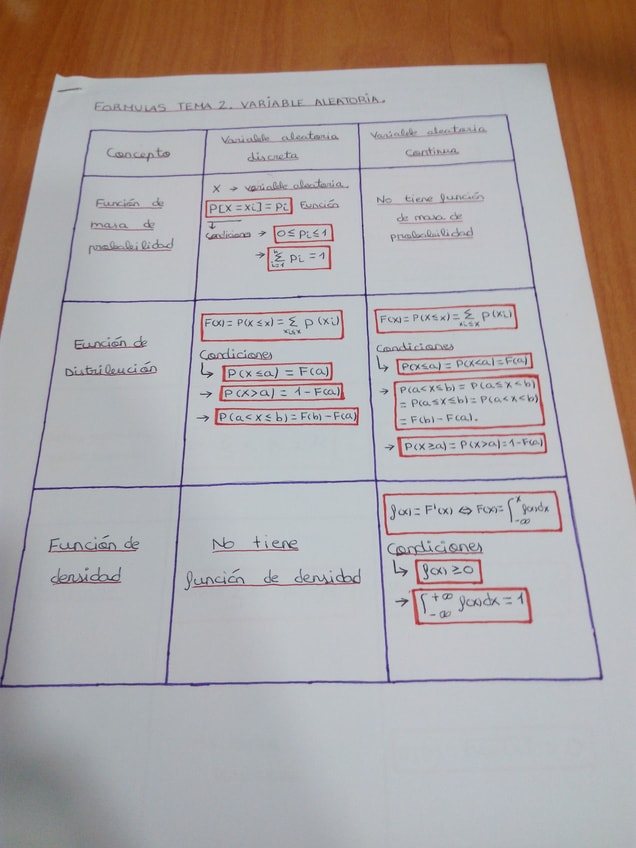 FORMULAS TEMA 2. VARIABLE ALEATORIA.
Concepto
Variable aleatoria
discreta
Variable aleatoria
continua
Función de
masa de
probabilidad
X → variable aleatoria.
P[X = xi] = pi Función
Condiciones → 0 ≤ pi ≤ 1
→ n∑i=1 pi = 1
No tiene función
de masa de
probabilidad
Función de
Distribución
F(x) = P(X ≤ x) = ∑xi≤x p(xi)
Condiciones
↳ P(x ≤ a) = F(a)
→ P(x > a) = 1 - F(a)
→ P(a < x ≤ b) = F(b) - F(a)
F(x) = P(X ≤ x) = ∑xi≤x p(xi)
Condiciones
↳ P(x ≤ a) = P(x < a) = F(a)
→ P(a < x ≤ b) = P(a ≤ x < b)
= P(a ≤ x ≤ b) = P(a < x < b)
= F(b) - F(a).
→ P(x ≥ a) = P(x > a) = 1 - F(a)
Función de
densidad
No tiene
función de densidad
f(x) = F'(x) ⇔ F(x) = ∫-∞^x f(x)dx
Condiciones
↳ f(x) ≥ 0
→ ∫-∞^+∞ f(x)dx = 1